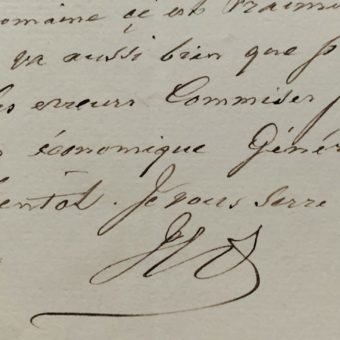 omaine çe est vraim
va aussi bien que p
erreurs Commises
économique Génér
ientôt. Je vous serre